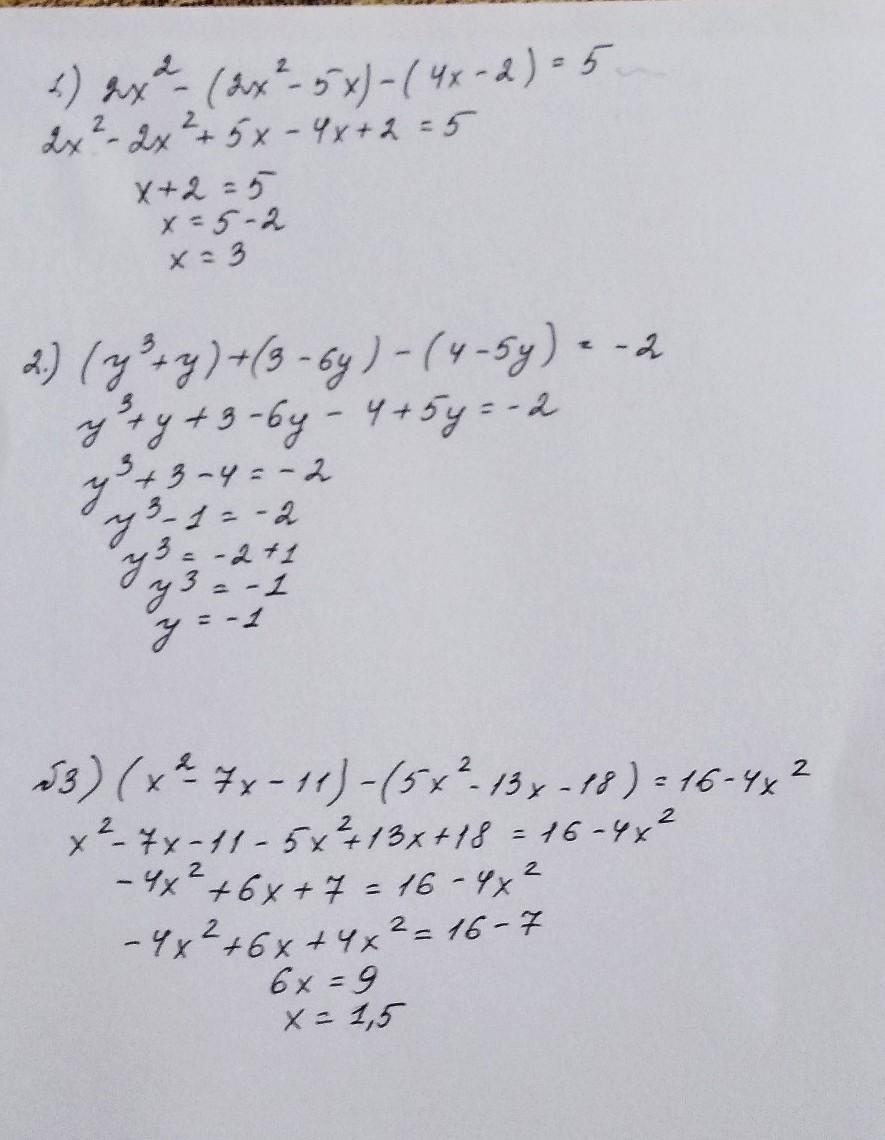 1) 2x² - (2x² - 5x) - (4x - 2) = 5
2x² - 2x² + 5x - 4x + 2 = 5
x + 2 = 5
x = 5 - 2
x = 3
2.) (y³ + y) + (3 - 6y) - (4 - 5y) = -2
y³ + y + 3 - 6y - 4 + 5y = -2
y³ + 3 - 4 = -2
y³ - 1 = -2
y³ = -2 + 1
y³ = -1
y = -1
3) (x² - 7x - 11) - (5x² - 13x - 18) = 16 - 4x²
x² - 7x - 11 - 5x² + 13x + 18 = 16 - 4x²
-4x² + 6x + 7 = 16 - 4x²
-4x² + 6x + 4x² = 16 - 7
6x = 9
x = 1,5